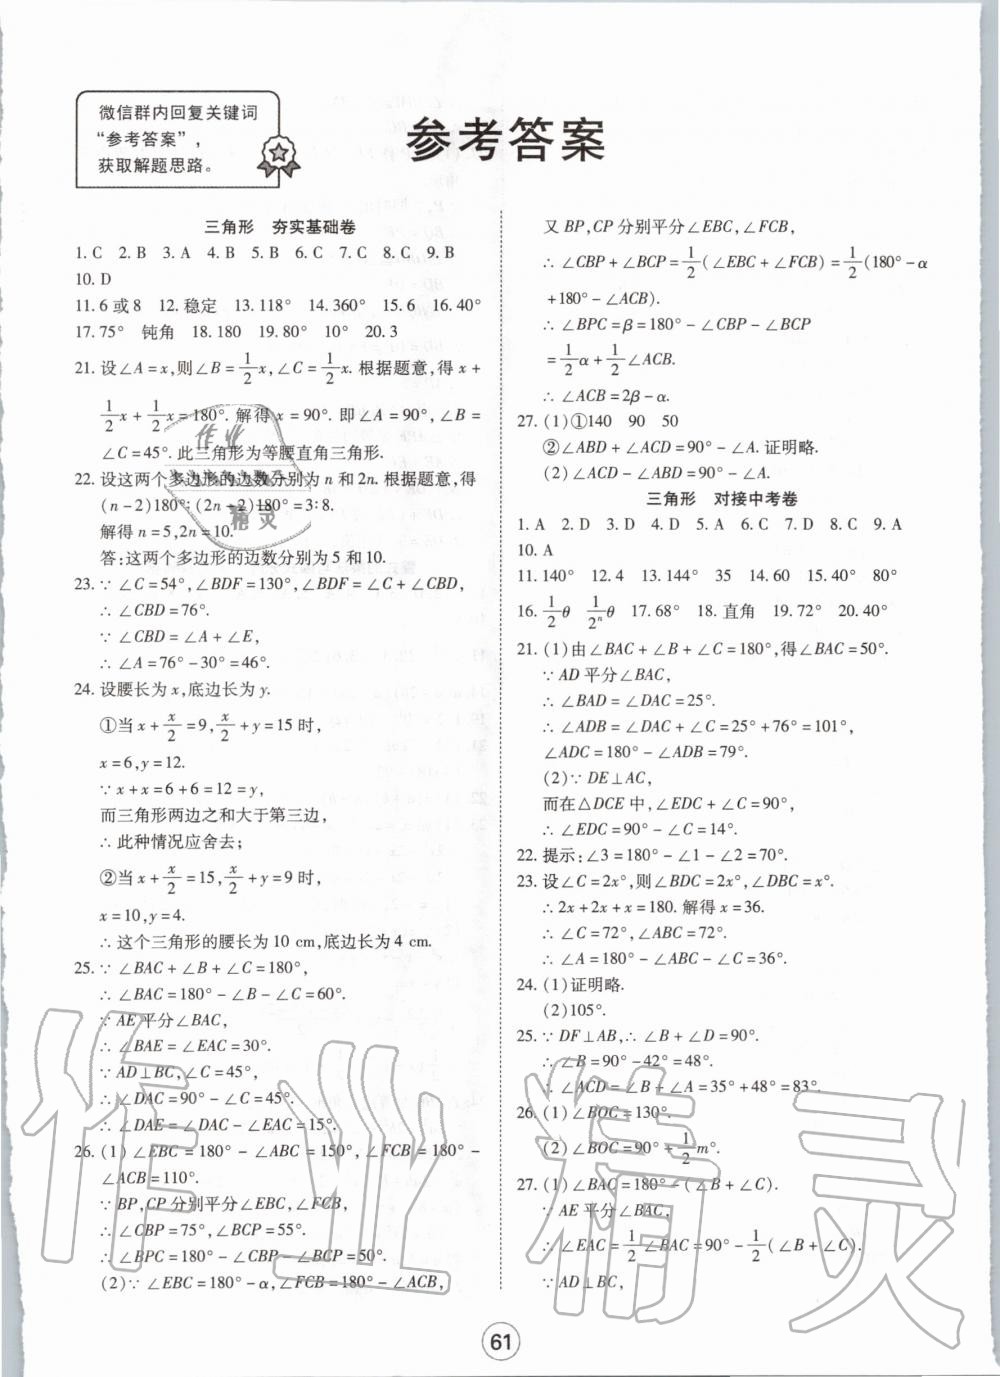 微信群内回复关键词
“参考答案”，
获取解题思路。
参考答案
三角形　夯实基础卷
1. C　2. B　3. A　4. B　5. B　6. C　7. C　8. C　9. B
10. D
11. 6 或 8　12. 稳定　13. 118°　14. 360°　15. 6　16. 40°
17. 75°　钝角　18. 180　19. 80°　10°　20. 3
21. 设∠A = x,则∠B = 1/2 x,∠C = 1/2 x. 根据题意,得 x +
1/2 x + 1/2 x = 180°. 解得 x = 90°. 即∠A = 90°,∠B =
∠C = 45°. 此三角形为等腰直角三角形.
22. 设这两个多边形的边数分别为 n 和 2n. 根据题意,得
(n - 2)180°∶(2n - 2)180° = 3∶8.
解得 n = 5,2n = 10.
答:这两个多边形的边数分别为 5 和 10.
23. ∵ ∠C = 54°,∠BDF = 130°,∠BDF = ∠C + ∠CBD,
∴ ∠CBD = 76°.
∵ ∠CBD = ∠A + ∠E,
∴ ∠A = 76° - 30° = 46°.
24. 设腰长为 x,底边长为 y.
①当 x + x/2 = 9, x/2 + y = 15 时,
x = 6,y = 12.
∵ x + x = 6 + 6 = 12 = y,
而三角形两边之和大于第三边,
∴ 此种情况应舍去;
②当 x + x/2 = 15, x/2 + y = 9 时,
x = 10,y = 4.
∴ 这个三角形的腰长为 10 cm,底边长为 4 cm.
25. ∵ ∠BAC + ∠B + ∠C = 180°,
∴ ∠BAC = 180° - ∠B - ∠C = 60°.
∵ AE 平分∠BAC,
∴ ∠BAE = ∠EAC = 30°.
∵ AD⊥BC,∠C = 45°,
∴ ∠DAC = 90° - ∠C = 45°.
∴ ∠DAE = ∠DAC - ∠EAC = 15°.
26. (1) ∠EBC = 180° - ∠ABC = 150°,∠FCB = 180° -
∠ACB = 110°.
∵ BP,CP 分别平分∠EBC,∠FCB,
∴ ∠CBP = 75°,∠BCP = 55°.
∴ ∠BPC = 180° - ∠CBP - ∠BCP = 50°.
(2) ∵ ∠EBC = 180° - α,∠FCB = 180° - ∠ACB,
又 BP,CP 分别平分∠EBC,∠FCB,
∴ ∠CBP + ∠BCP = 1/2 (∠EBC + ∠FCB) = 1/2 (180° - α
+ 180° - ∠ACB).
∴ ∠BPC = β = 180° - ∠CBP - ∠BCP
= 1/2 α + 1/2 ∠ACB.
∴ ∠ACB = 2β - α.
27. (1)①140　90　50
②∠ABD + ∠ACD = 90° - ∠A. 证明略.
(2)∠ACD - ∠ABD = 90° - ∠A.
三角形　对接中考卷
1. A　2. D　3. D　4. D　5. A　6. C　7. D　8. C　9. A
10. A
11. 140°　12. 4　13. 144°　35　14. 60　15. 40°　80°
16. 1/2 θ　1/2ⁿ θ　17. 68°　18. 直角　19. 72°　20. 40°
21. (1)由∠BAC + ∠B + ∠C = 180°,得∠BAC = 50°.
∵ AD 平分∠BAC,
∴ ∠BAD = ∠DAC = 25°.
∴ ∠ADB = ∠DAC + ∠C = 25° + 76° = 101°,
∠ADC = 180° - ∠ADB = 79°.
(2)∵ DE⊥AC,
而在△DCE 中,∠EDC + ∠C = 90°,
∴ ∠EDC = 90° - ∠C = 14°.
22. 提示:∠3 = 180° - ∠1 - ∠2 = 70°.
23. 设∠C = 2x°,则∠BDC = 2x°,∠DBC = x°.
∴ 2x + 2x + x = 180. 解得 x = 36.
∴ ∠C = 72°,∠ABC = 72°.
∴ ∠A = 180° - ∠ABC - ∠C = 36°.
24. (1)证明略.
(2)105°.
25. ∵ DF⊥AB,∴ ∠B + ∠D = 90°.
∴ ∠B = 90° - 42° = 48°.
∴ ∠ACD = ∠B + ∠A = 35° + 48° = 83°.
26. (1)∠BOC = 130°.
(2)∠BOC = 90° + 1/2 m°.
27. (1)∠BAC = 180° - (∠B + ∠C).
∵ AE 平分∠BAC,
∴ ∠EAC = 1/2 ∠BAC = 90° - 1/2 (∠B + ∠C).
∵ AD⊥BC,
61
作业
精灵
作业精灵